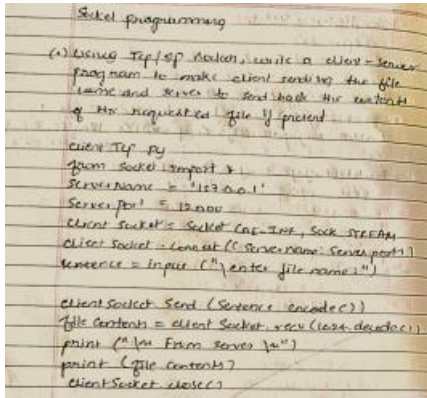 Socket programming
(1) Using Tcp/ip sockets, write a client-server
program to make client sending the file
name and server to send back the contents
of the requested file if present
client Tcp py
from socket import *
serverName = '127.0.0.1'
Server port = 12000
client socket = Socket (AF_INET, SOCK STREAM
client socket - connect ((server name: server port))
sentence = input ("\enter file name:")
client socket Send (Sentence encode())
file contents = client Socket. recv (1024. decode()
print ("\n From server \n")
print (file contents)
client Socket close()